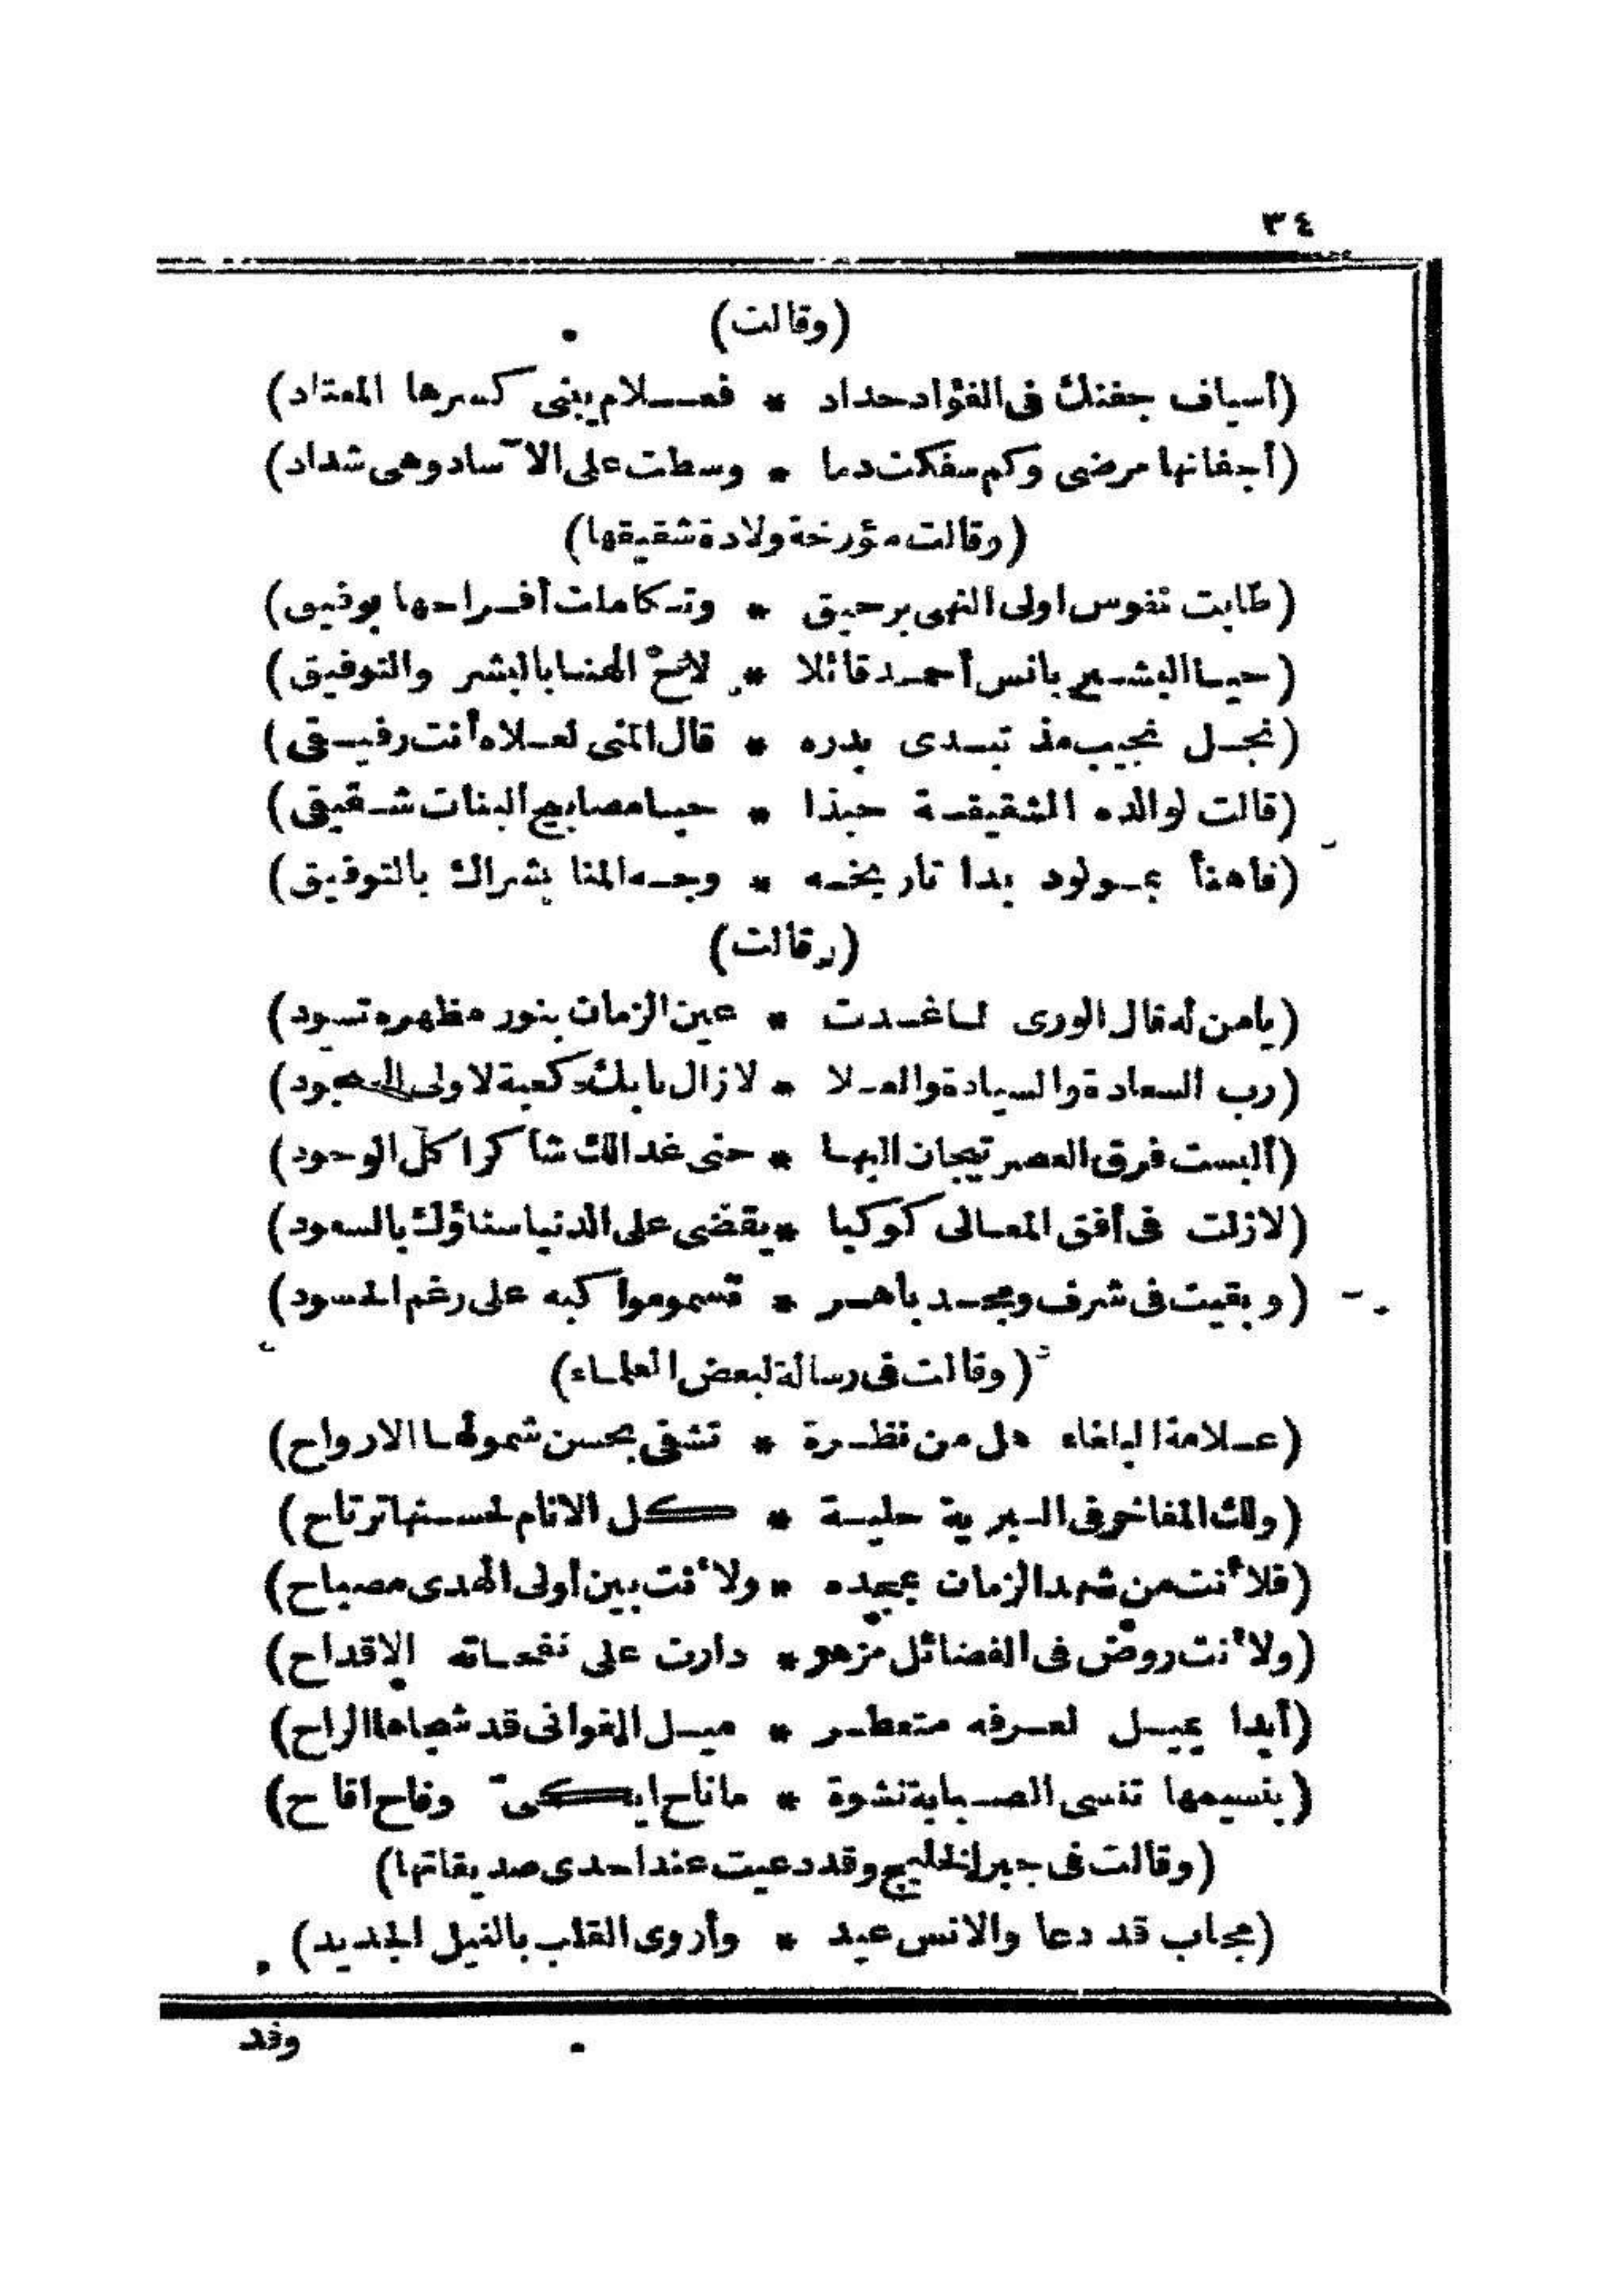 ٣٤
(وقالت)
(أسياف جفنك فى الفؤاد حداد * فعـلام يبنى كسرها المعتاد)
(أجفانها مرضى وكم سفكت دما * وسطت على الآساد وهى شداد)
(وقالت مؤرخة ولادة شقيقها)
(طابت نفوس اولى النهى برحيق * وتكاملت أفراحها بوفيق)
(حيا البشير بانس أحمد قائلا * لائح الهنا بالبشر والتوفيق)
(نجل نجيب مذ تبدى بدره * قال المنى لعلاه أنت رفيقى)
(قالت لوالده الشقيقة حبذا * حيا مصابيح البنات شقيقى)
(فاهنأ بمولود بدا تاريخه * وجه المنا بشراك بالتوفيق)
(وقالت)
(يامن له قال الورى لما غدت * عين الزمان بنور مظهره تسود)
(رب السعادة والسيادة والعلا * لازال بابك كعبة لاولى السجود)
(ألبست فرق العصر تيجان البها * حتى غدا لك شاكرا كل الوجود)
(لازلت فى أفق المعالى كوكبا * يقضى على الدنيا سناؤك بالسعود)
(وبقيت فى شرف ومجد باهر * تسمو مواكبه على رغم الحسود)
(وقالت فى رسالة لبعض العلماء)
(علامة البلغاء هل من نظرة * تشفى بحسن شمولها الارواح)
(ولك المفاخر فى البرية حلية * كل الانام لحسنها ترتاح)
(فلأنت من شهد الزمان بمجده * ولأنت بين أولى الهدى مصباح)
(ولأنت روض فى الفضائل مزهر * دارت على نفحاته الاقداح)
(أبدا يميل لعرفه متعطر * ميل الغوانى قد شجاها الراح)
(بنسيمها تنسى الصبابة نشوة * ما ناح ايكىّ وفاح اقاح)
(وقالت فى جبر الخليج وقد دعيت عند احدى صديقاتها)
(مجاب قد دعا والانس عيد * وأروى القلب بالنيل الجديد)
وقد